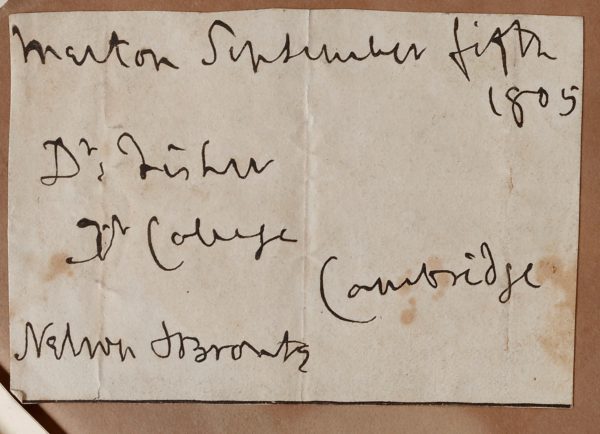 Merton September fifth
1805
Dr. Fisher
College
Cambridge
Nelson & Bronte